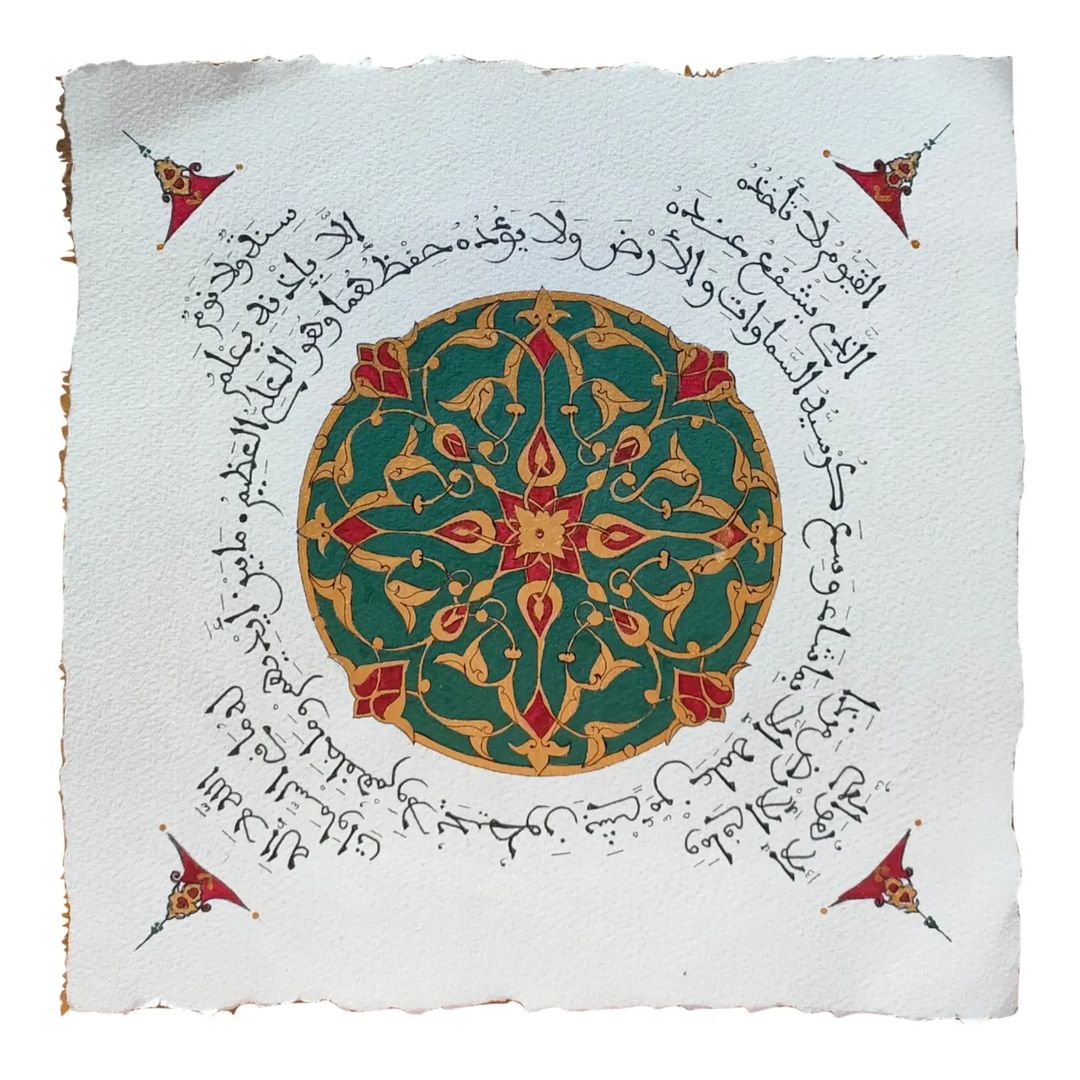 اللَّه لَا إِلَه
إِلَّا هُوَ الْحَيُّ
القَيُّومُ لَا تَأْخُذُهُ
سِنَةٌ وَلَا نَوْمٌ
لَهُ مَا فِي السَّمَاوَاتِ
وَمَا فِي الْأَرْضِ مَن ذَا
الَّذِي يَشْفَعُ عِنْدَهُ
إِلَّا بِإِذْنِهِ يَعْلَمُ
مَا بَيْنَ أَيْدِيهِمْ وَمَا خَلْفَهُمْ وَلَا يُحِيطُونَ بِشَيْءٍ مِّنْ عِلْمِهِ إِلَّا بِمَا شَاءَ وَسِعَ كُرْسِيُّهُ السَّمَاوَاتِ وَالْأَرْضَ وَلَا يَؤُدُهُ حِفْظُهُمَا وَهُوَ الْعَلِيُّ الْعَظِيمُ